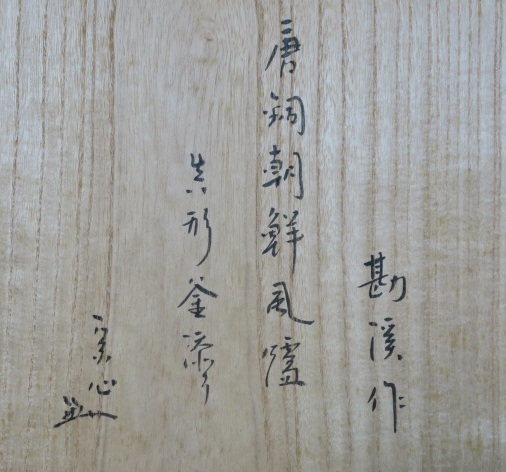 勘渓作
唐銅朝鮮風爐
真形釜添
宗心